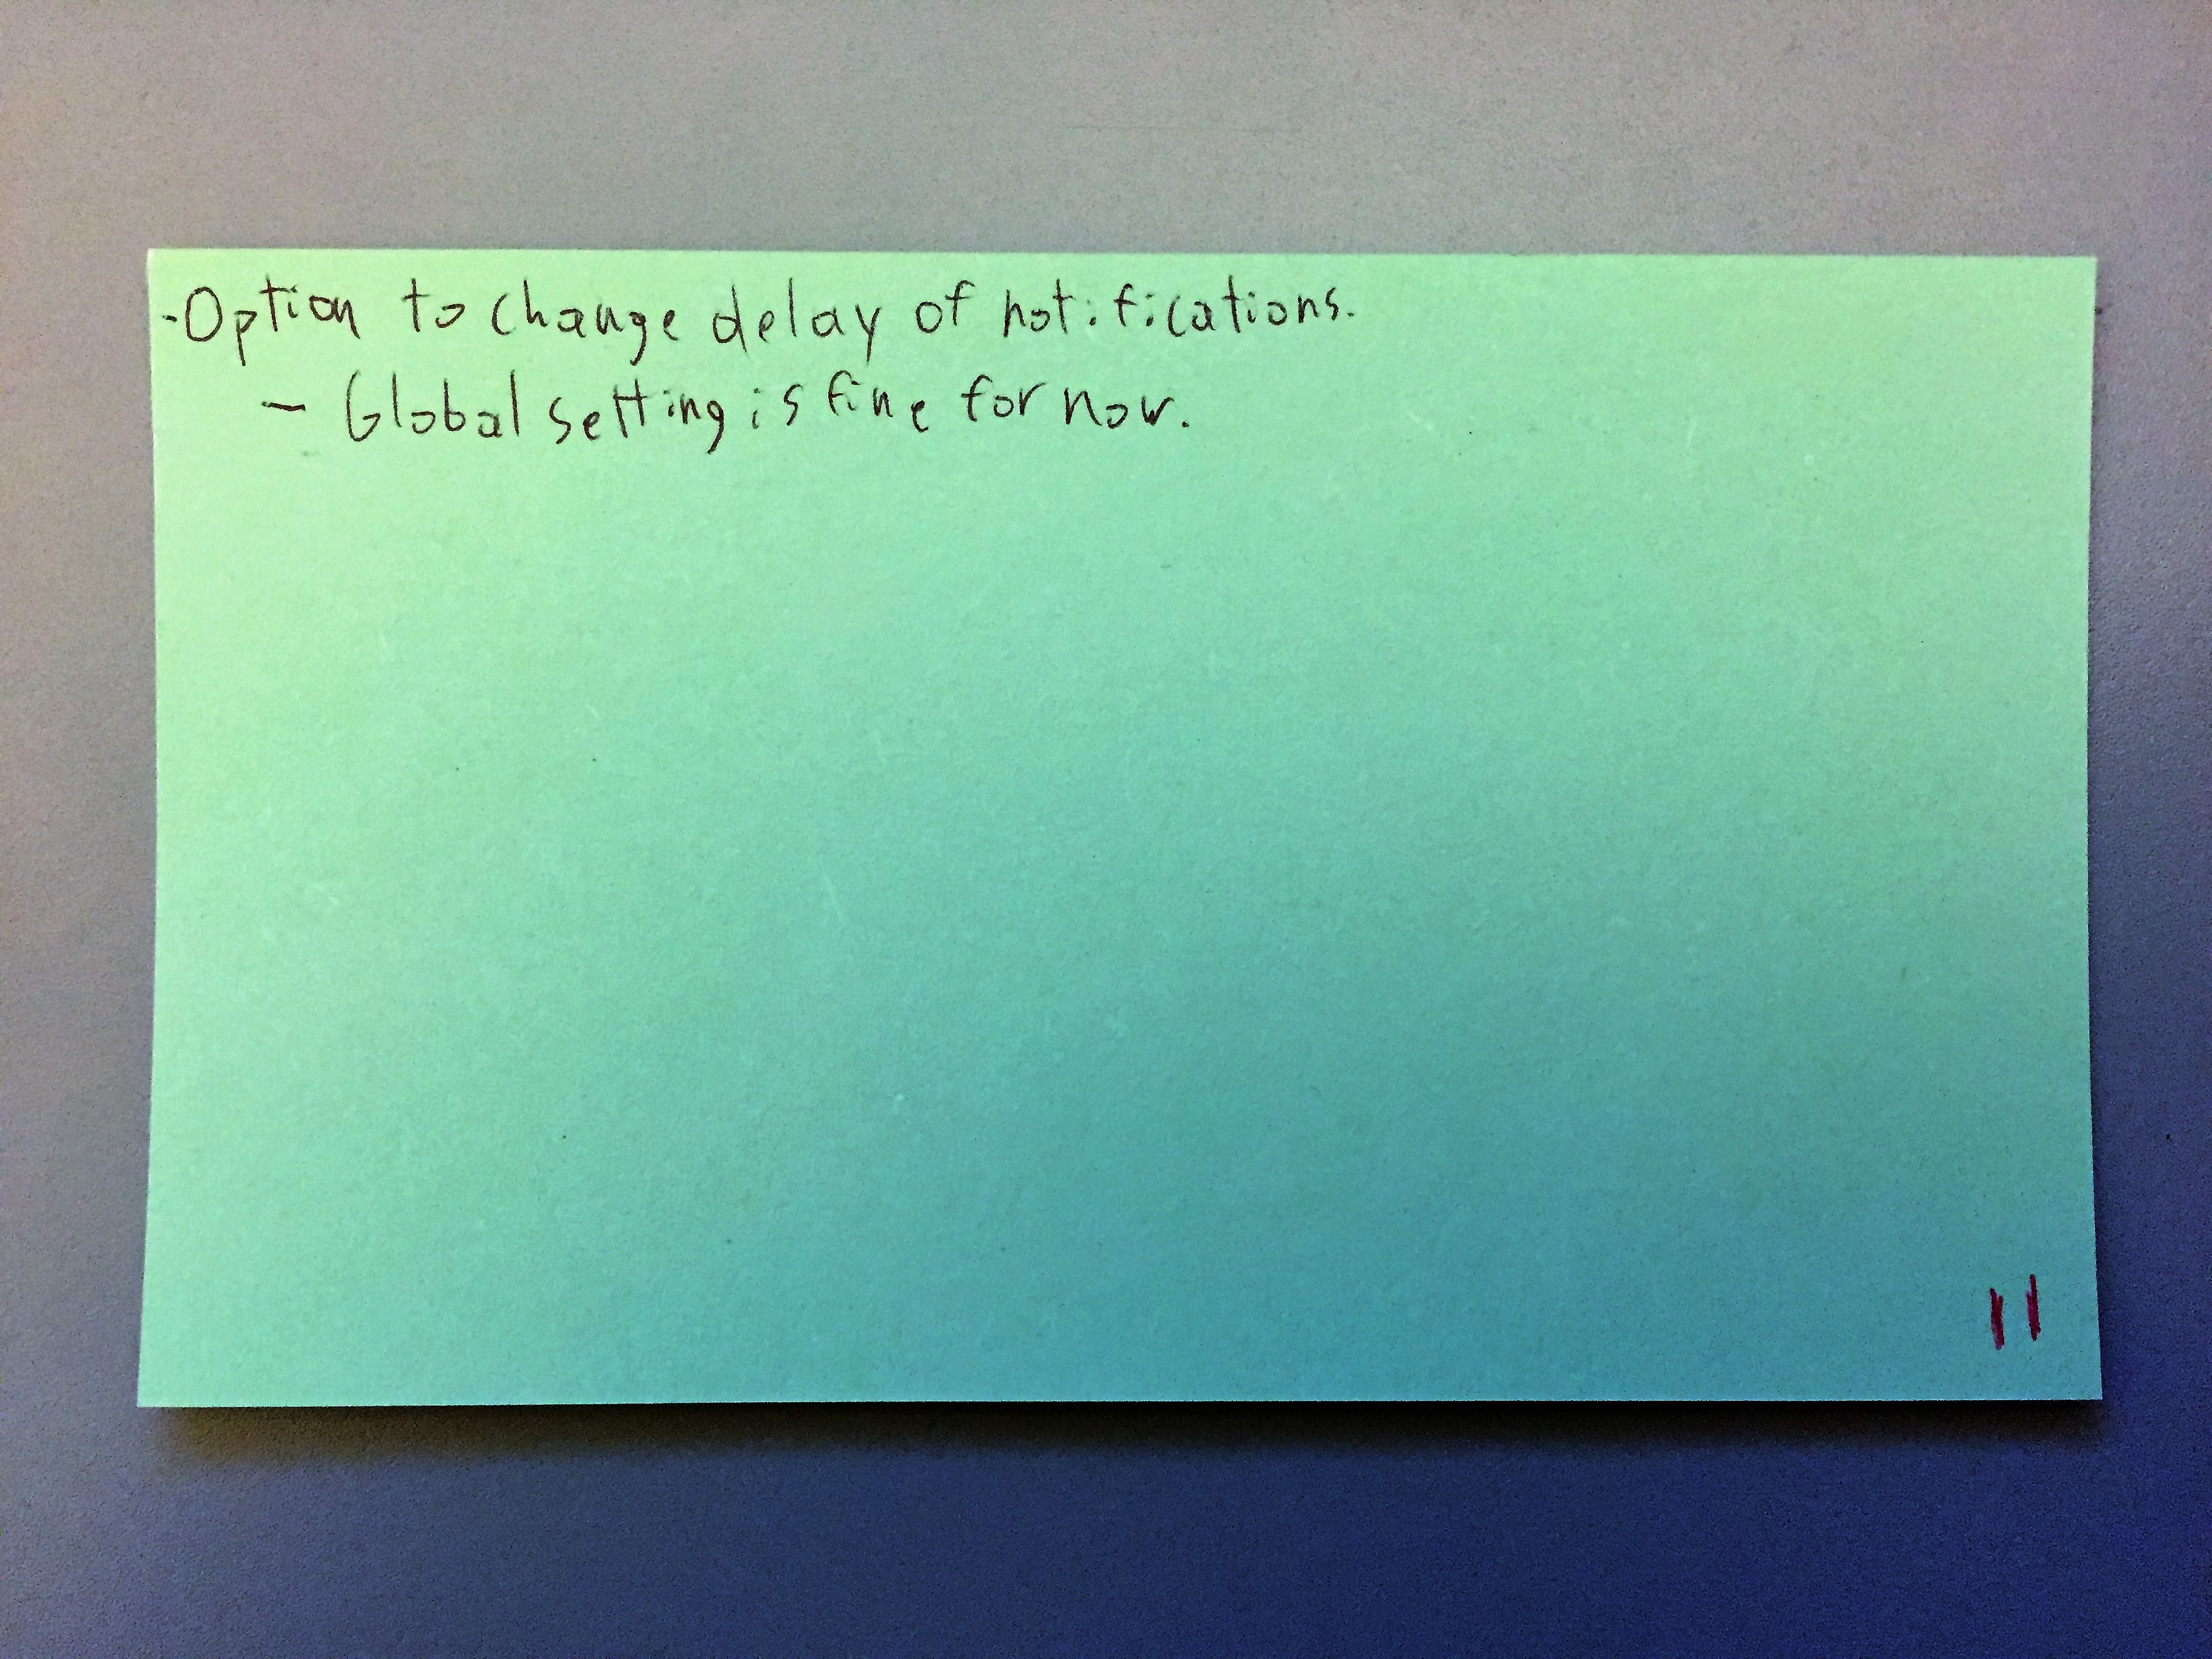 -Option to change delay of notifications.
- Global setting is fine for now.
11